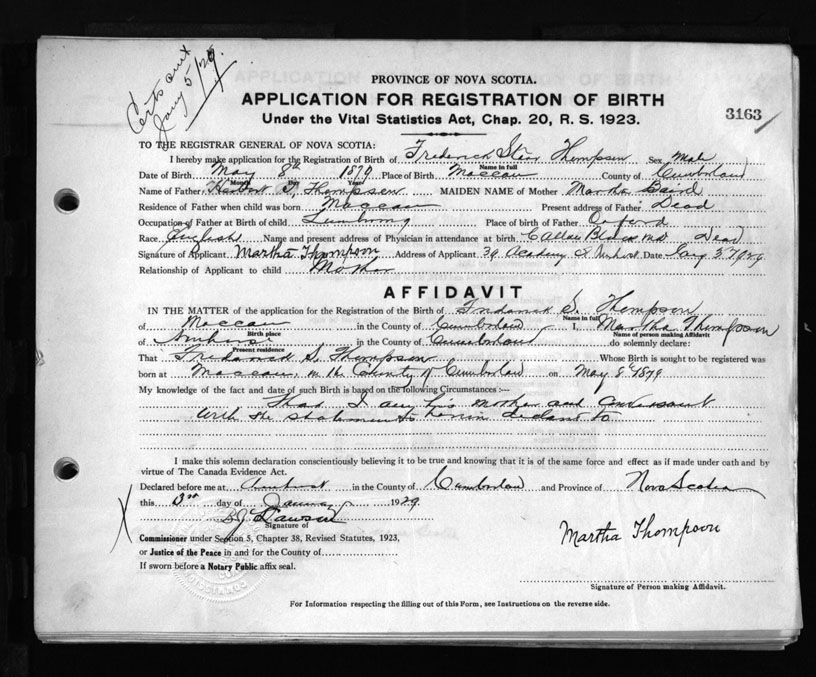 Certs sent
Jany 5/29.
PROVINCE OF NOVA SCOTIA.
APPLICATION FOR REGISTRATION OF BIRTH
Under the Vital Statistics Act, Chap. 20, R. S. 1923.
3163
TO THE REGISTRAR GENERAL OF NOVA SCOTIA:
I hereby make application for the Registration of Birth of Frederick Thompson Sex Male
Name in full
Date of Birth May 8th 1879 Place of Birth Maccan County of Cumberland
Month Day Year
Name of Father Thompson MAIDEN NAME of Mother Martha Baird
Residence of Father when child was born Maccan Present address of Father Dead
Occupation of Father at Birth of child Place of birth of Father Oxford
Race English Name and present address of Physician in attendance at birth C Allan Black MD Dead
Signature of Applicant Martha Thompson Address of Applicant 39 Academy St Amherst Date Jany 3rd 1929
Relationship of Applicant to child Mother
AFFIDAVIT
IN THE MATTER of the application for the Registration of the Birth of Frederick S. Thompson
Name in full
of Maccan in the County of Cumberland I, Martha Thompson
Birth place Name of person making Affidavit
of Amherst in the County of Cumberland do solemnly declare:
Present residence
That Frederick S. Thompson Whose Birth is sought to be registered was
born at Maccan in the County of Cumberland on May 8th 1879
My knowledge of the fact and date of such Birth is based on the following Circumstances :—
That I am his mother and conversant
with the statements herein declared to
I make this solemn declaration conscientiously believing it to be true and knowing that it is of the same force and effect as if made under oath and by
virtue of The Canada Evidence Act.
Declared before me at Amherst in the County of Cumberland and Province of Nova Scotia
this 3rd day of January 1929.
Signature of
Commissioner under Section 5, Chapter 38, Revised Statutes, 1923,
or Justice of the Peace in and for the County of
If sworn before a Notary Public affix seal.
Martha Thompson
Signature of Person making Affidavit.
For Information respecting the filling out of this Form, see Instructions on the reverse side.